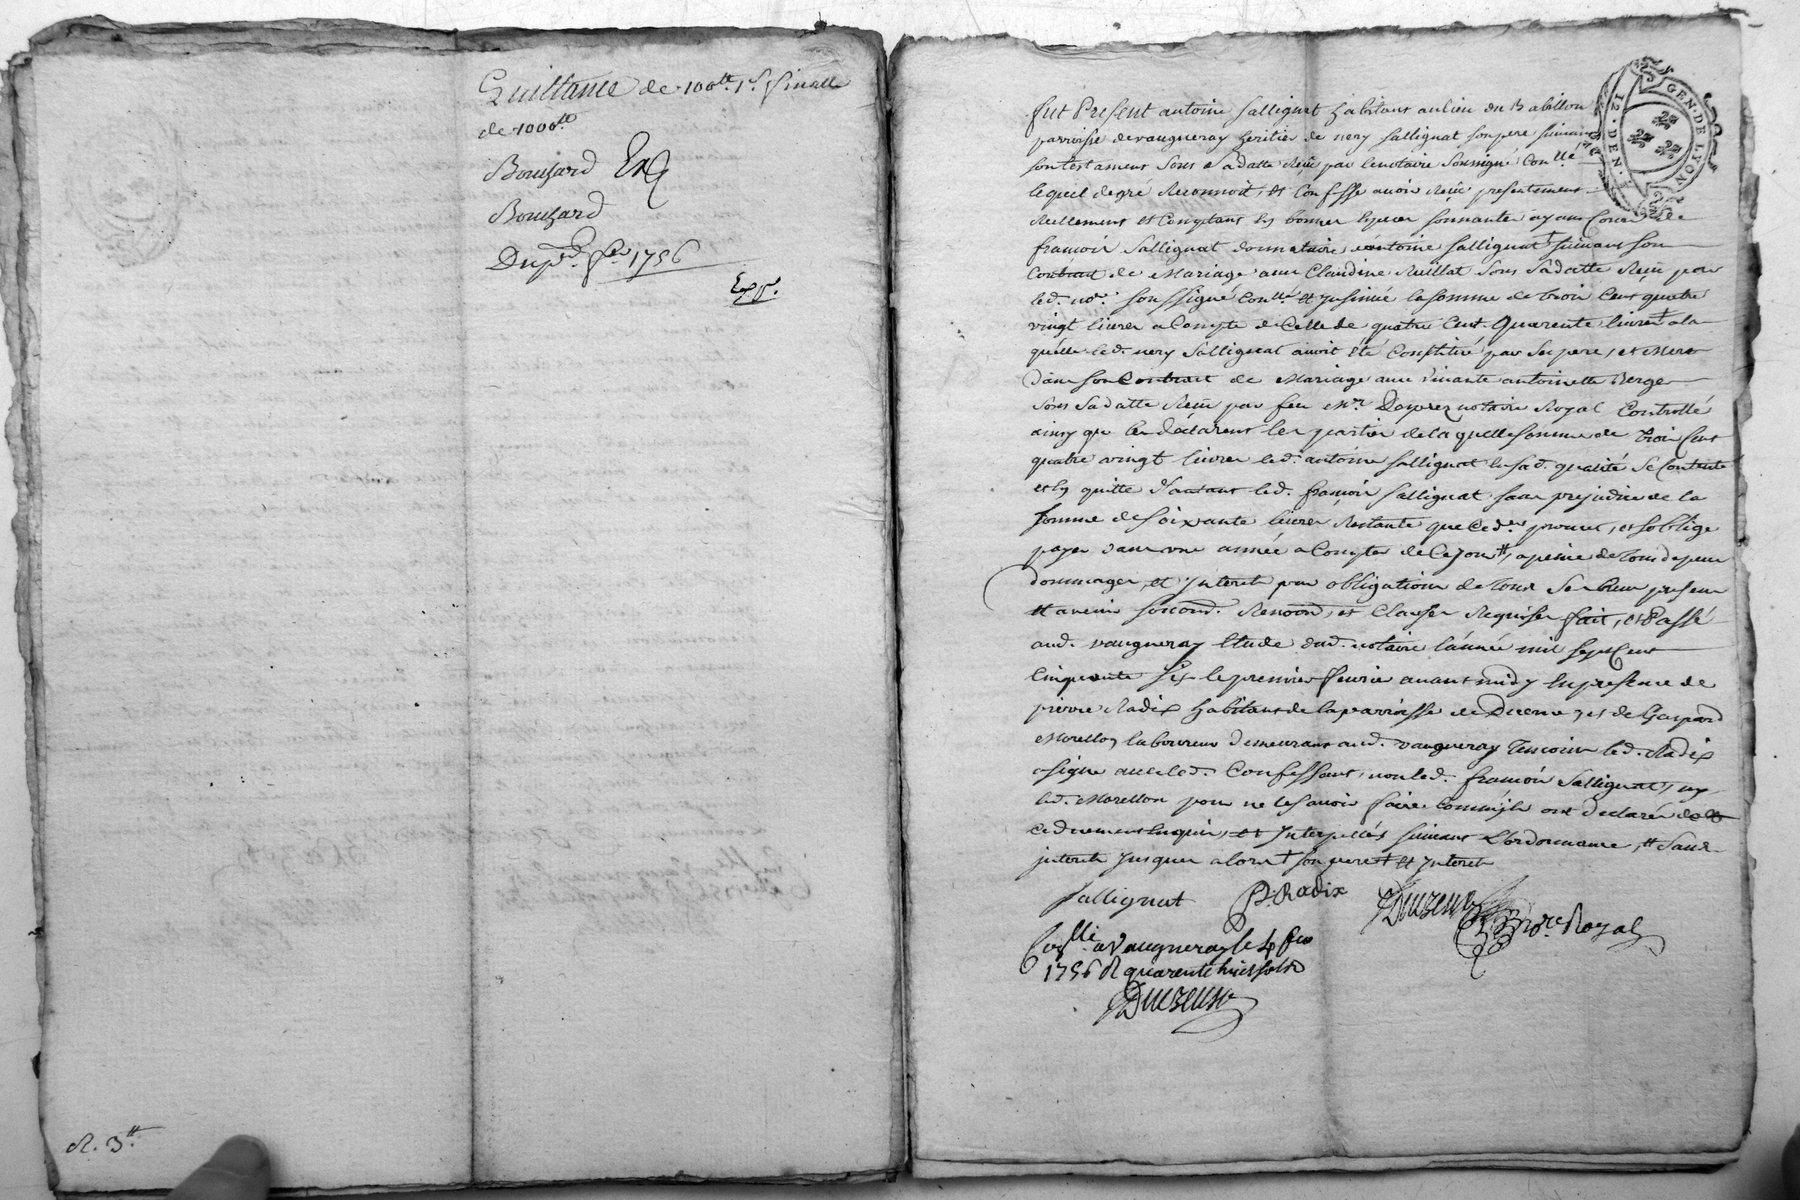 Quittance de 100tt 1s finalle
de 1000tt
Bouchard Exp
Bouchard
Du pr fer 1756
Exp.
R. 3tt
GEN. DE LYON
12. DEN.
fut Present antoine Sallignat habitant au lieu du Babillon
parroisse de vaugneray heritier de nery Sallignat son pere suivant
son testament sous sa datte Reçu par le notaire soussigné Conllé
lequel de gré Reconnoit, et Confesse avoir Reçu presentement
Reellement et Comptant en bonnes Especes sonnantes ayant Cours de
francois Sallignat donnataire antoine Sallignat † suivant son
Contrait de Mariage avec Claudine Ruillat sous sa datte Reçu par
led. nore. soussigné Conllé et Insinué la somme de trois Cent quatre
vingt livres a Compte de Celle de quatre Cent Quarente livres a la
quelle led. nery Sallignat avoit été Constitué par ses pere, et Mere
dans son Contrait de Mariage avec vivante antoinette Berger
sous sa datte Reçu par feu Mr. Dayrez notaire Royal Controllé
ainsy que le déclarent les parties de la quelle somme de trois Cent
quatre vingt livres led. antoine Sallignat en sad. qualité se Contente
et En quitte d'autant led. francois Sallignat sans prejudice de la
somme de soixante livres Restante que Ced.er promet, et soblige
payer dans une année a Compter de Ce jour tt, a peine de tous depens
dommages, et Interets par obligation de tous ses biens presens
et avenir Renoon, et Clauses Requises fait, et Passé
aud. vaugneray Etude dud. notaire l'année mil sept Cent
Cinquante six le premier fevrier avant midy En presence de
pierre Radix habitant de la parroisse de Duerne, et de Gaspard
Morellon laboureur demeurant aud. vaugneray temoins led. Radix
a signé avec led. Confessant, non led. francois Sallignat, ny
led. Morellon pour ne le savoir faire Comm'ils ont declaré de
ce duement Enquis, et Interpellés suivant L'ordonnance, tt sans
interets jusques alors † son frere et Interets
Sallignat P. Radix Duizeux
nore. Royal
Conllé a Vaugneray le 4 feu
1756 R quarente huit sols
Duizeux